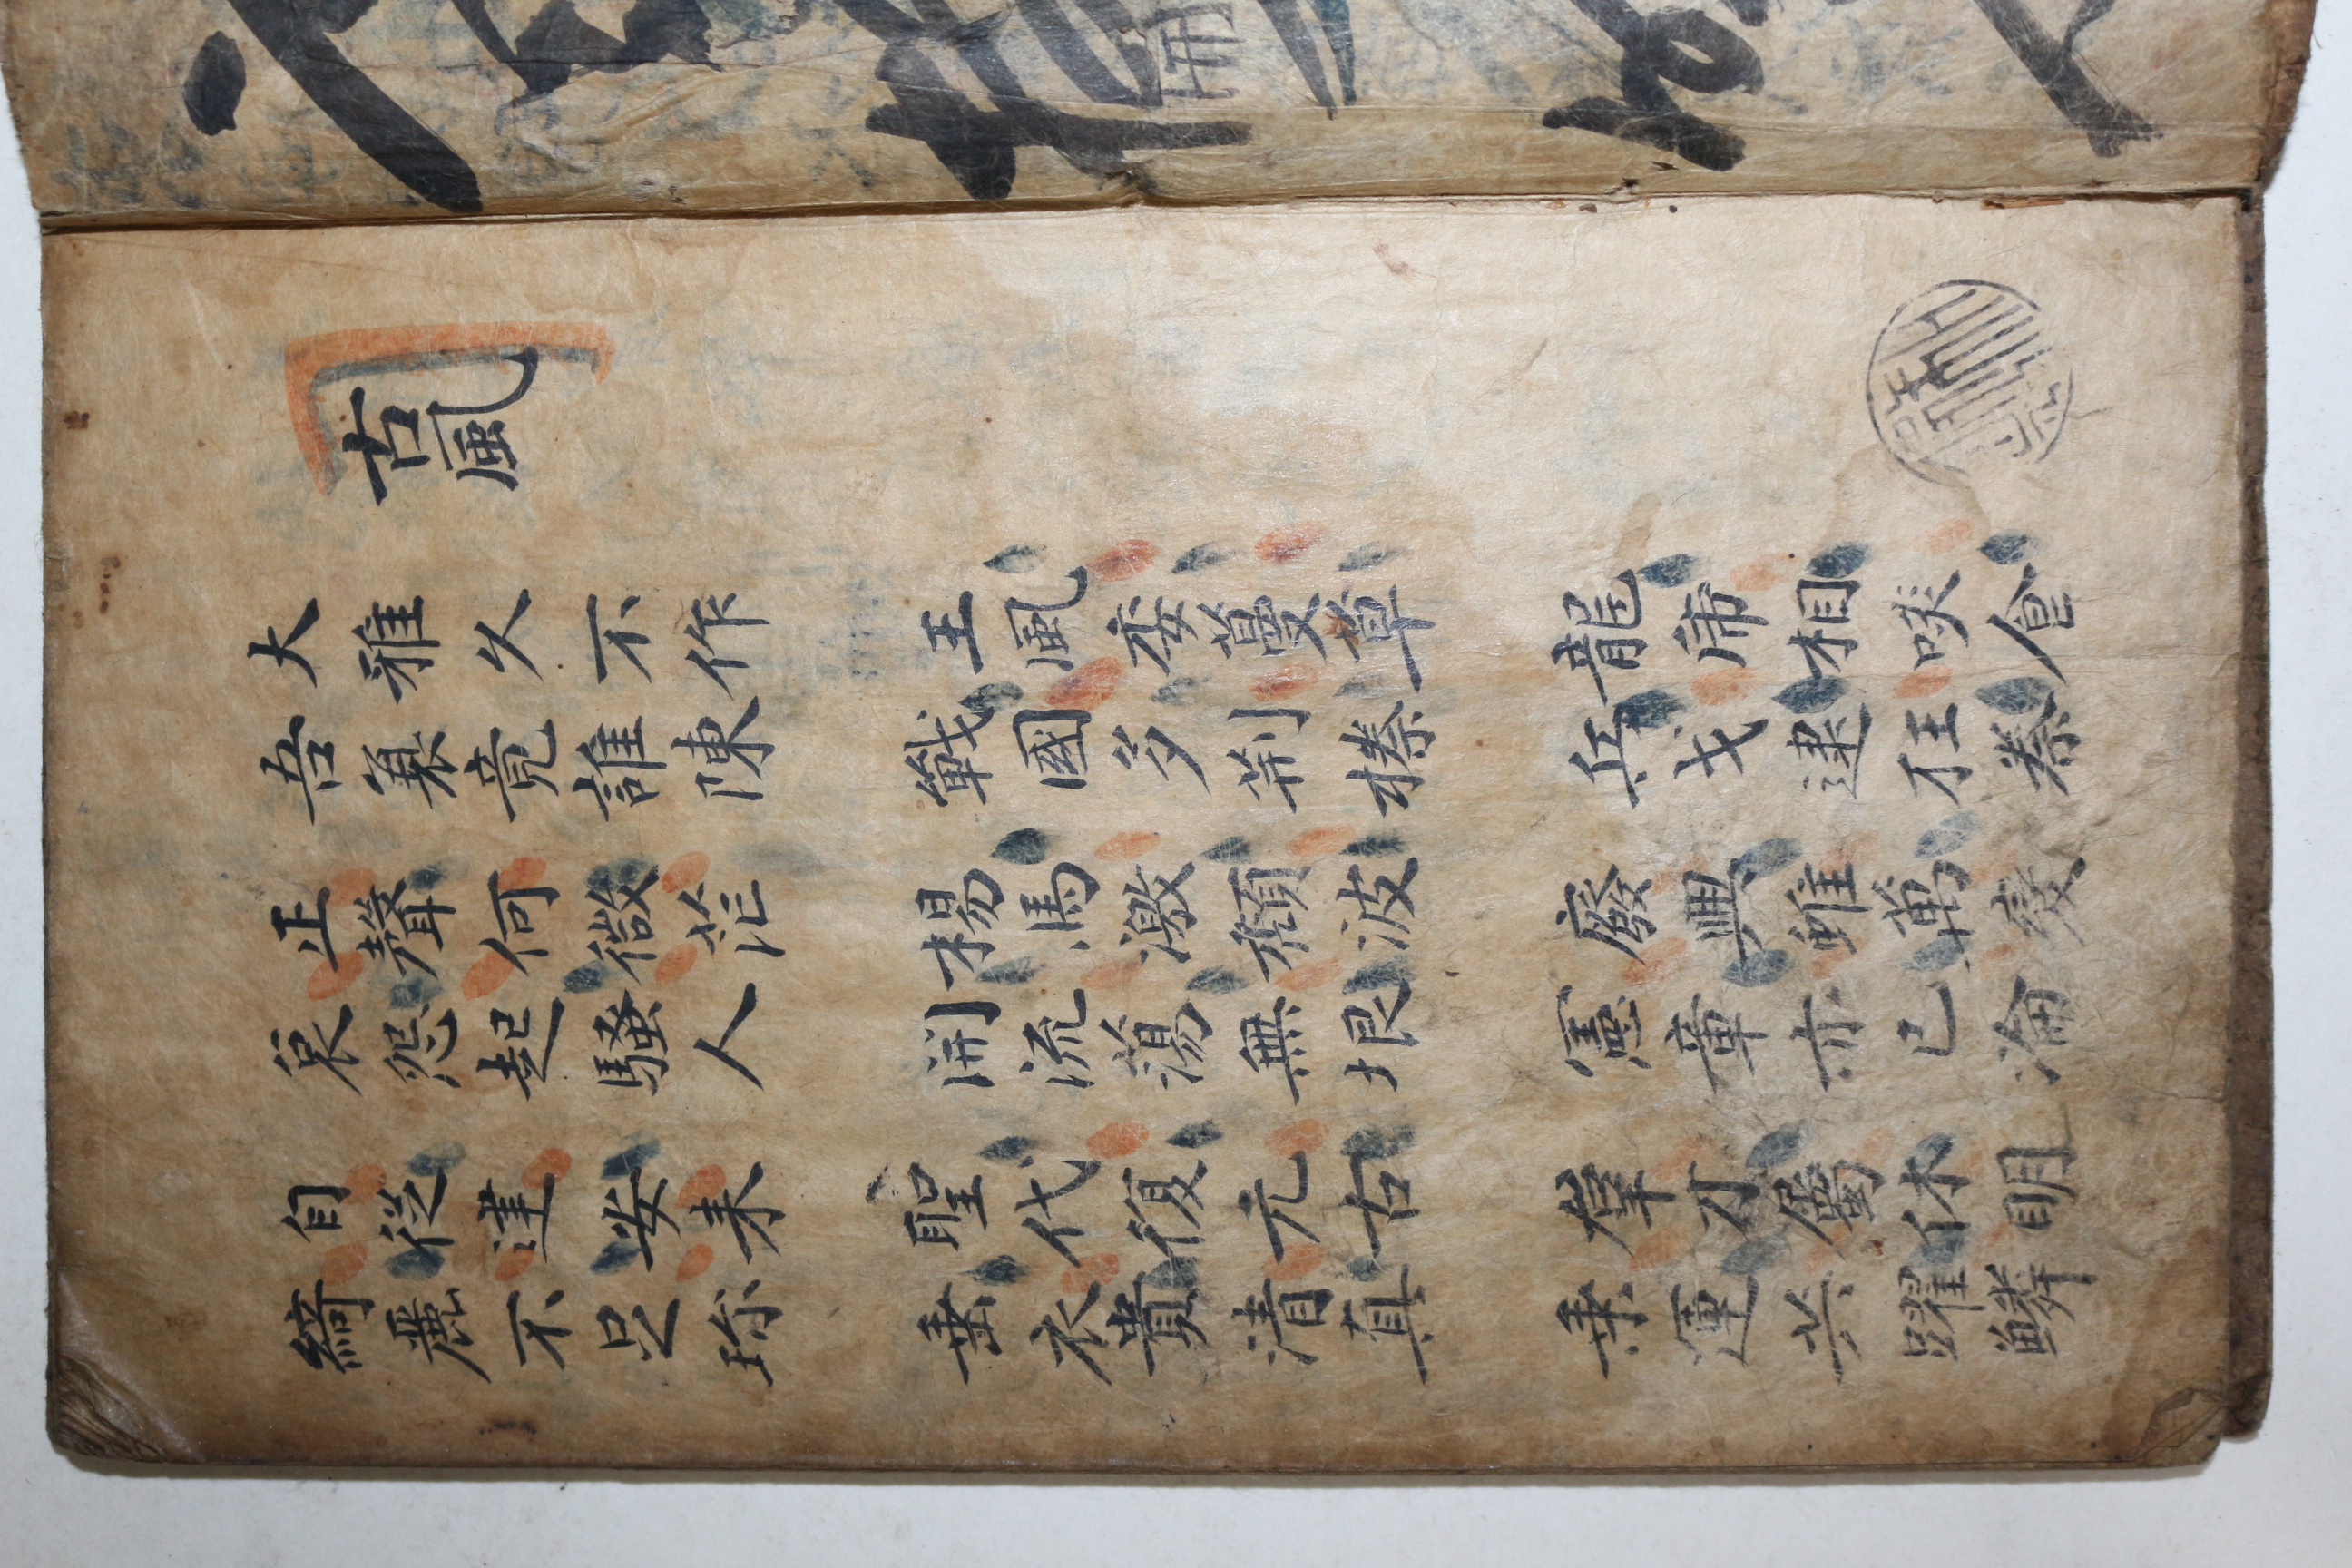 古風
大雅久不作
吾衰竟誰陳
王風委蔓草
戰國多荆榛
龍虎相啖食
兵戈逮狂秦
正聲何微茫
哀怨起騷人
楊馬激頹波
開流蕩無垠
廢興雖萬變
憲章亦已淪
自從建安来
綺麗不足珎
聖代復元古
垂衣貴清真
羣才屬休明
乘運共躍鱗